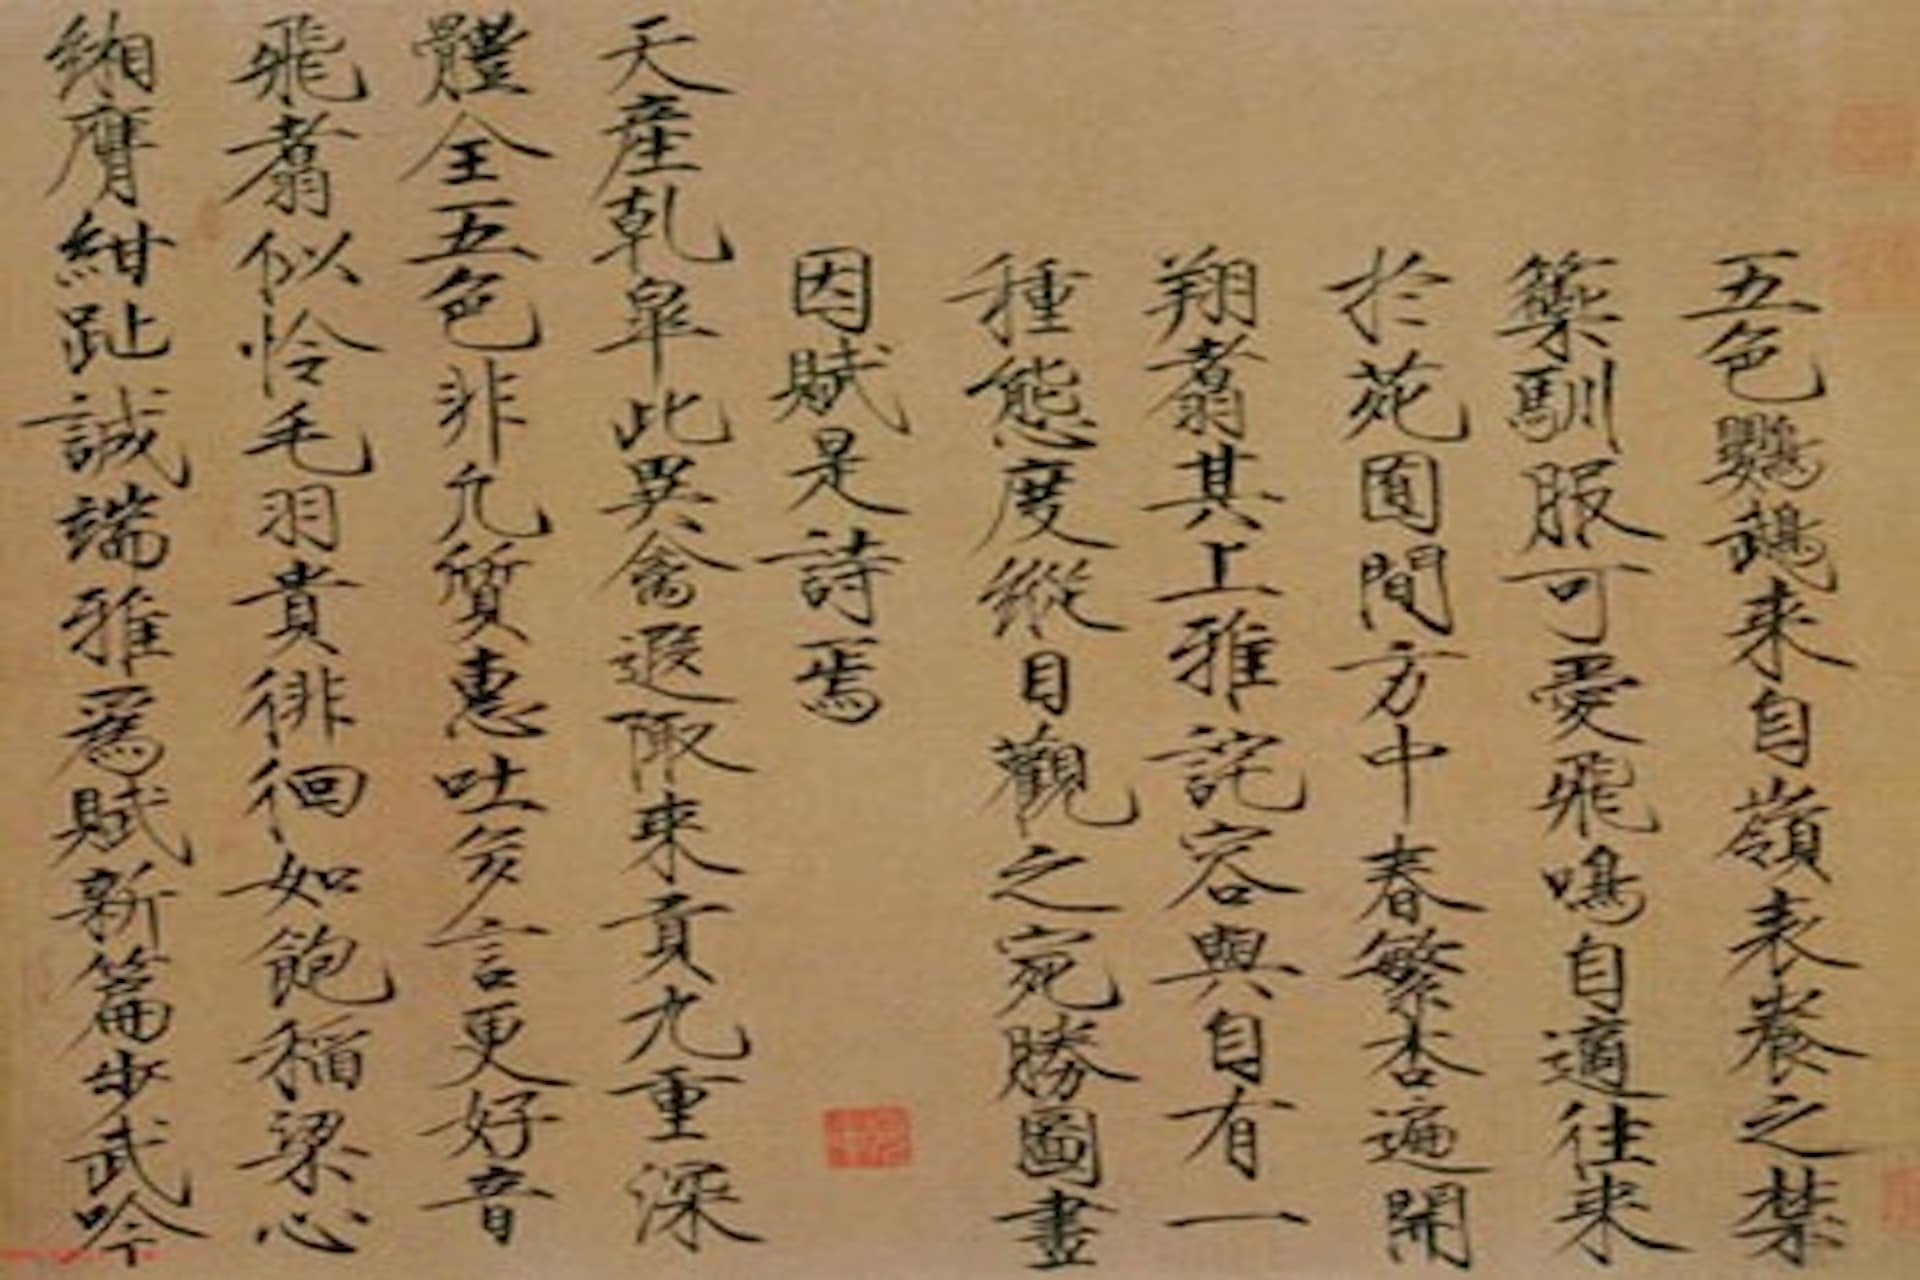 五色鸚鵡来自嶺表養之禁
籞馴服可愛飛鳴自適往来
於苑囿間方中春繁杏遍開
翔翥其上雅詫容與自有一
種態度縱目觀之宛勝圖畫
因賦是詩焉
天產乾皐此異禽遐陬来貢九重深
體全五色非凡質惠吐多言更好音
飛翥似怜毛羽貴徘徊如飽稲粱心
緗膺紺趾誠端雅為賦新篇步武吟